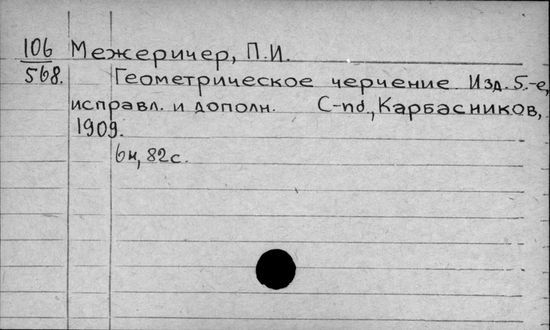 106 Межеричер, П.И.
568. Геометрическое черчение Изд. 5.-е,
исправл. и дополн. С-пб., Карбасников,
1909.
6н, 82с.